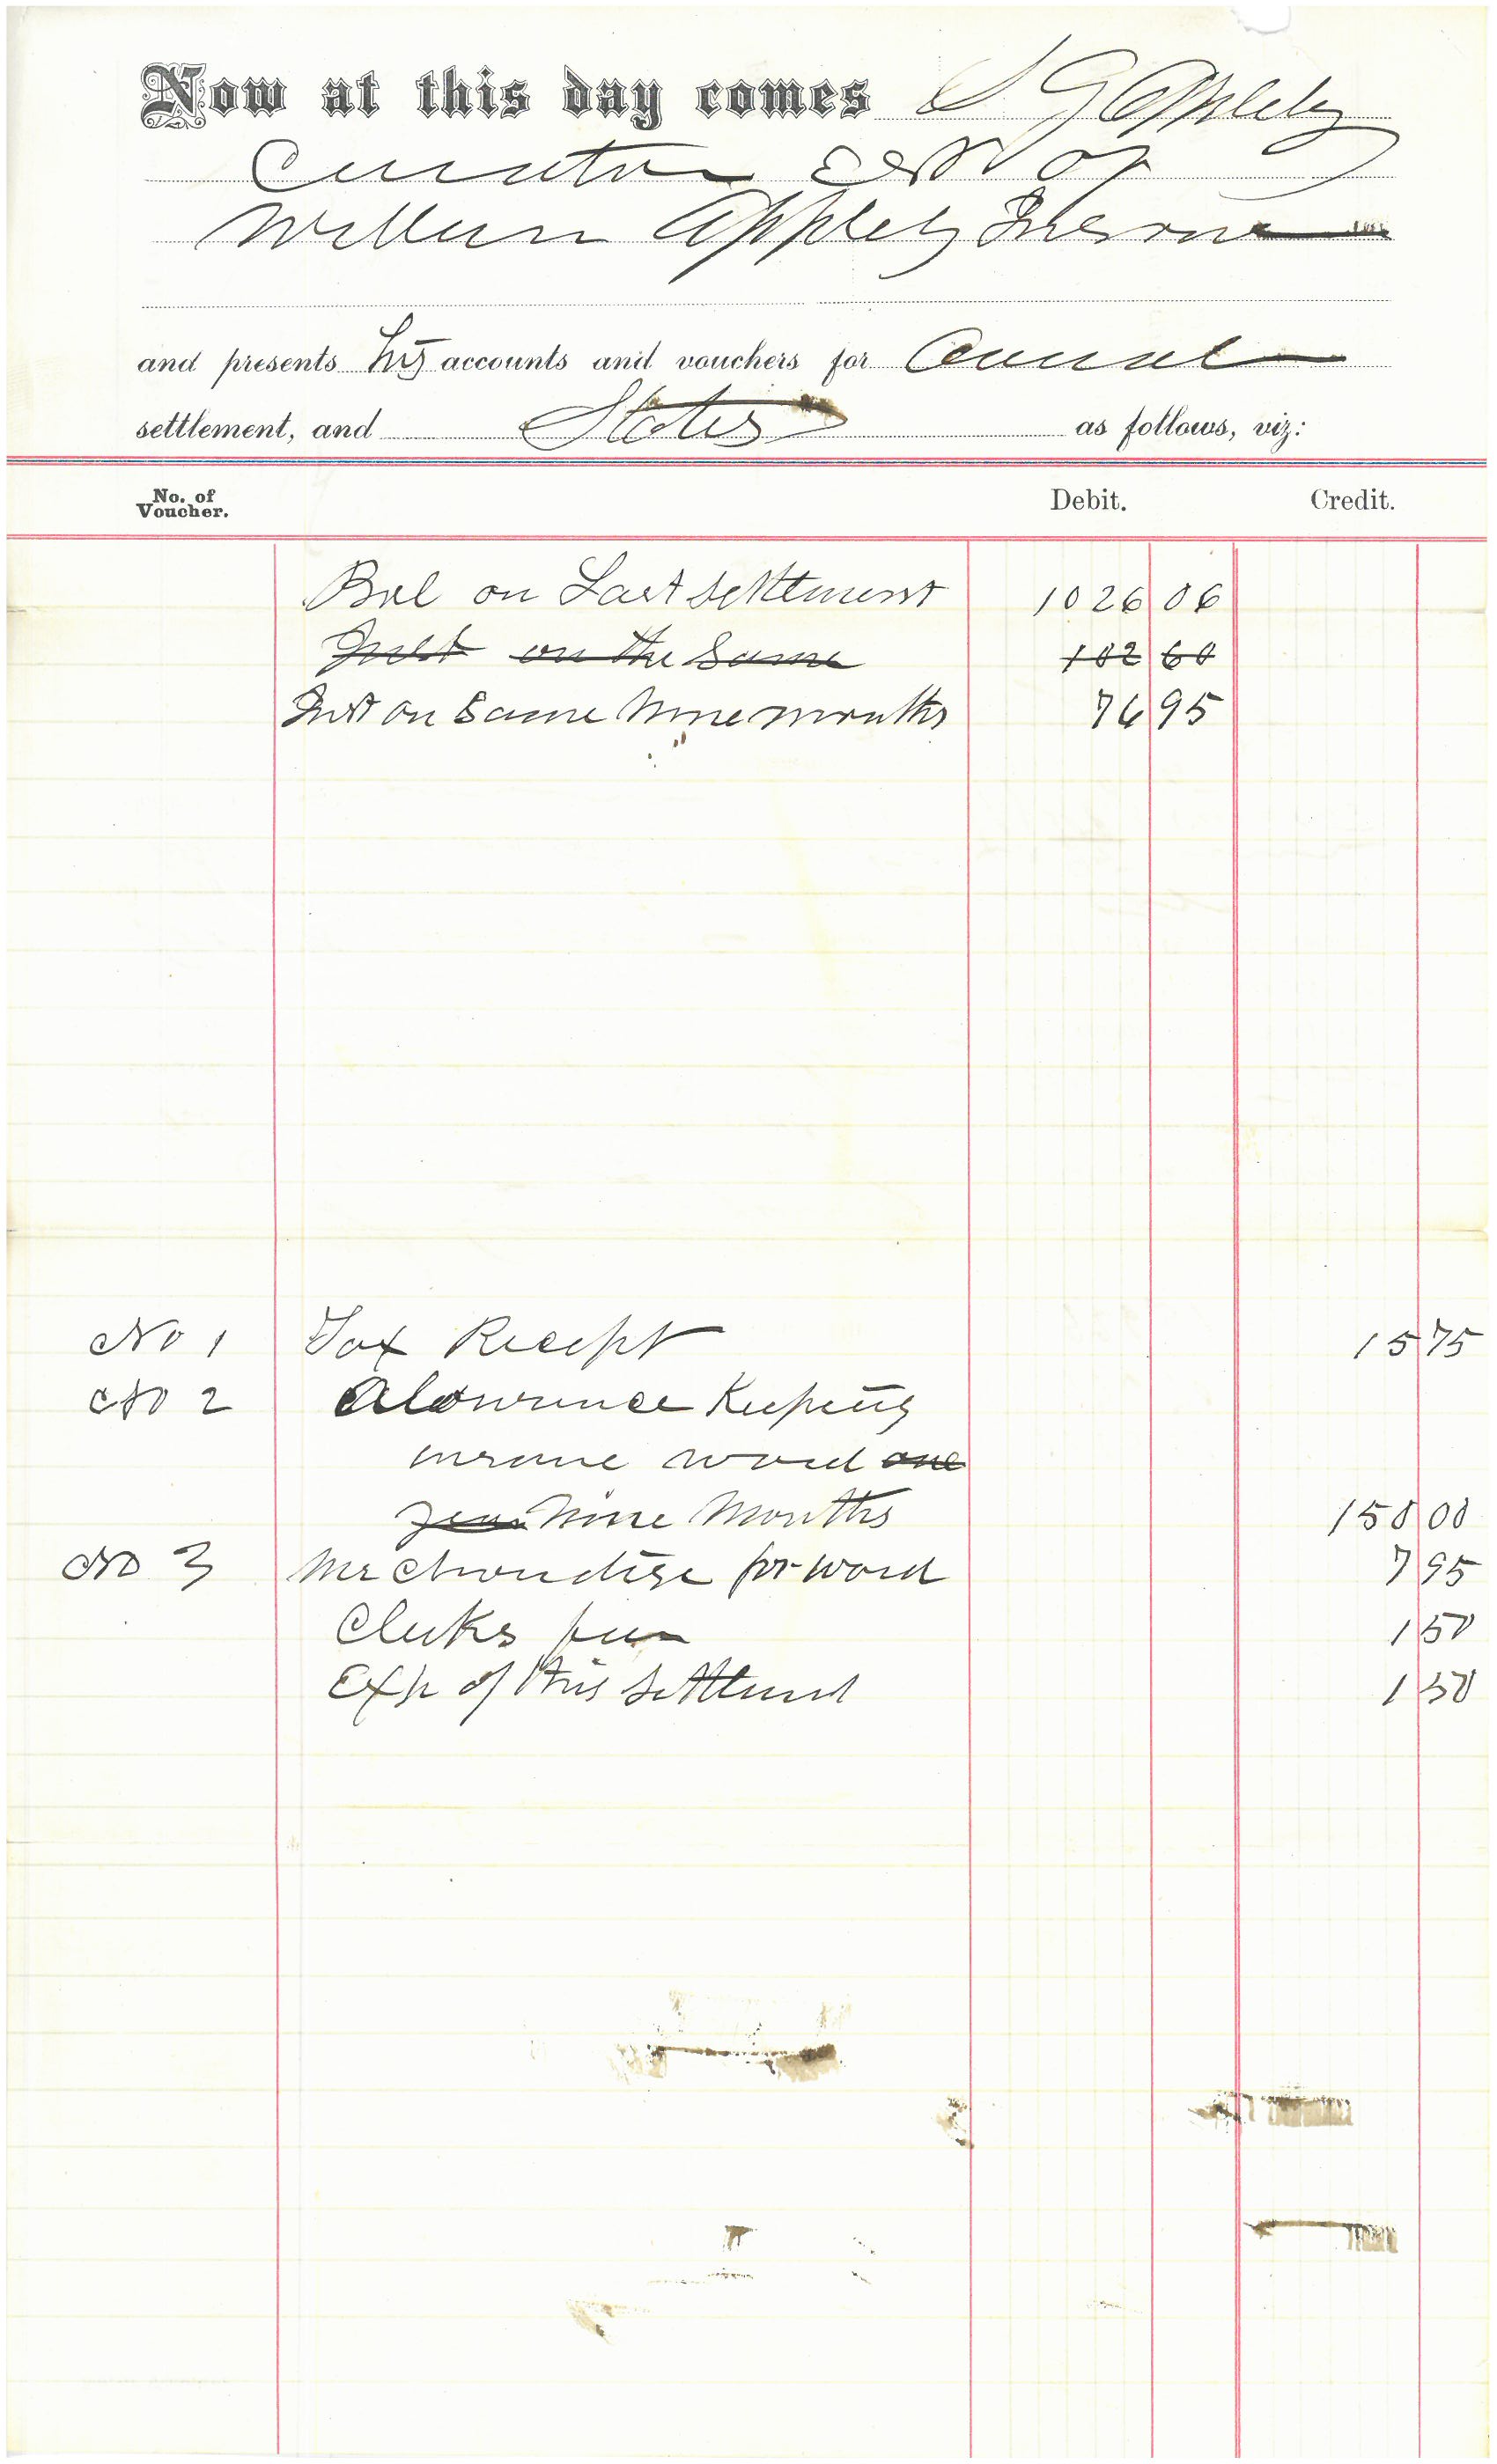 Now at this day comes S G Appleby
Curator Est of
William Appleby Insane
and presents his accounts and vouchers for Annual
settlement, and States as follows, viz:
No. of Voucher. Debit. Credit.
Bal on Last settlement 1026 06
Inst on the Same 102 60
Inst on Same Nine months 76 95
No 1 Tax Recept 15 75
No 2 Alowance Keeping
insane ward one
year Nine Months 150 00
No 3 Merchandise for ward 7 95
Clerks fees 1 50
Exp of this settlement 1 50